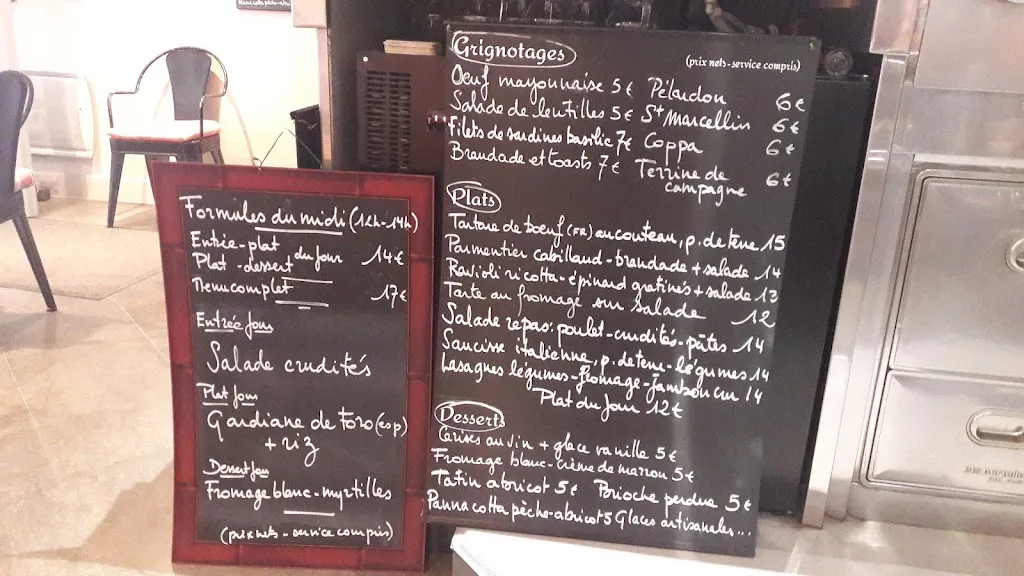 Formules du midi (12h-14h)
Entrée-plat
Plat-dessert du jour 14€
Menu complet 17€
Entrée jour
Salade crudités
Plat jour
Gardiane de toro (esp)
+ riz
Dessert jour
Fromage blanc-myrtilles
(prix nets-service compris)
Grignotages
(prix nets-service compris)
Oeuf mayonnaise 5€ Pélardon 6€
Salade de lentilles 5€ St Marcellin 6€
Filets de sardines basilic 7€ Coppa 6€
Brandade et toasts 7€ Terrine de
campagne 6€
Plats
Tartare de boeuf (FR) au couteau, p. de terre 15
Parmentier cabillaud-brandade + salade 14
Ravioli ricotta-épinard gratinés + salade 13
Tarte au fromage sur salade 12
Salade repas: poulet-crudités-pâtes 14
Saucisse italienne, p. de terre-légumes 14
Lasagnes légumes-fromage-jambon cru 14
Plat du jour 12€
Desserts
Cerises au vin + glace vanille 5€
Fromage blanc-crème de marron 5€
Tatin abricot 5€ Brioche perdue 5€
Panna cotta pêche-abricot 5 Glaces artisanales...